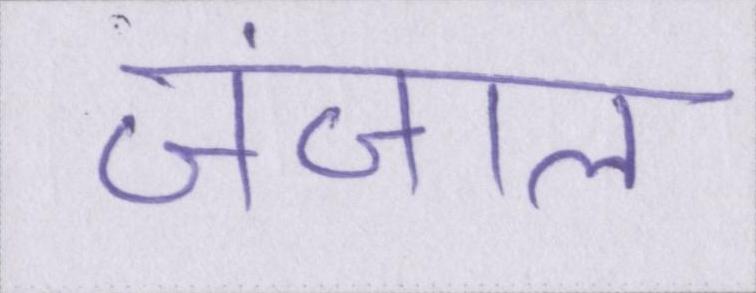 जंजाल